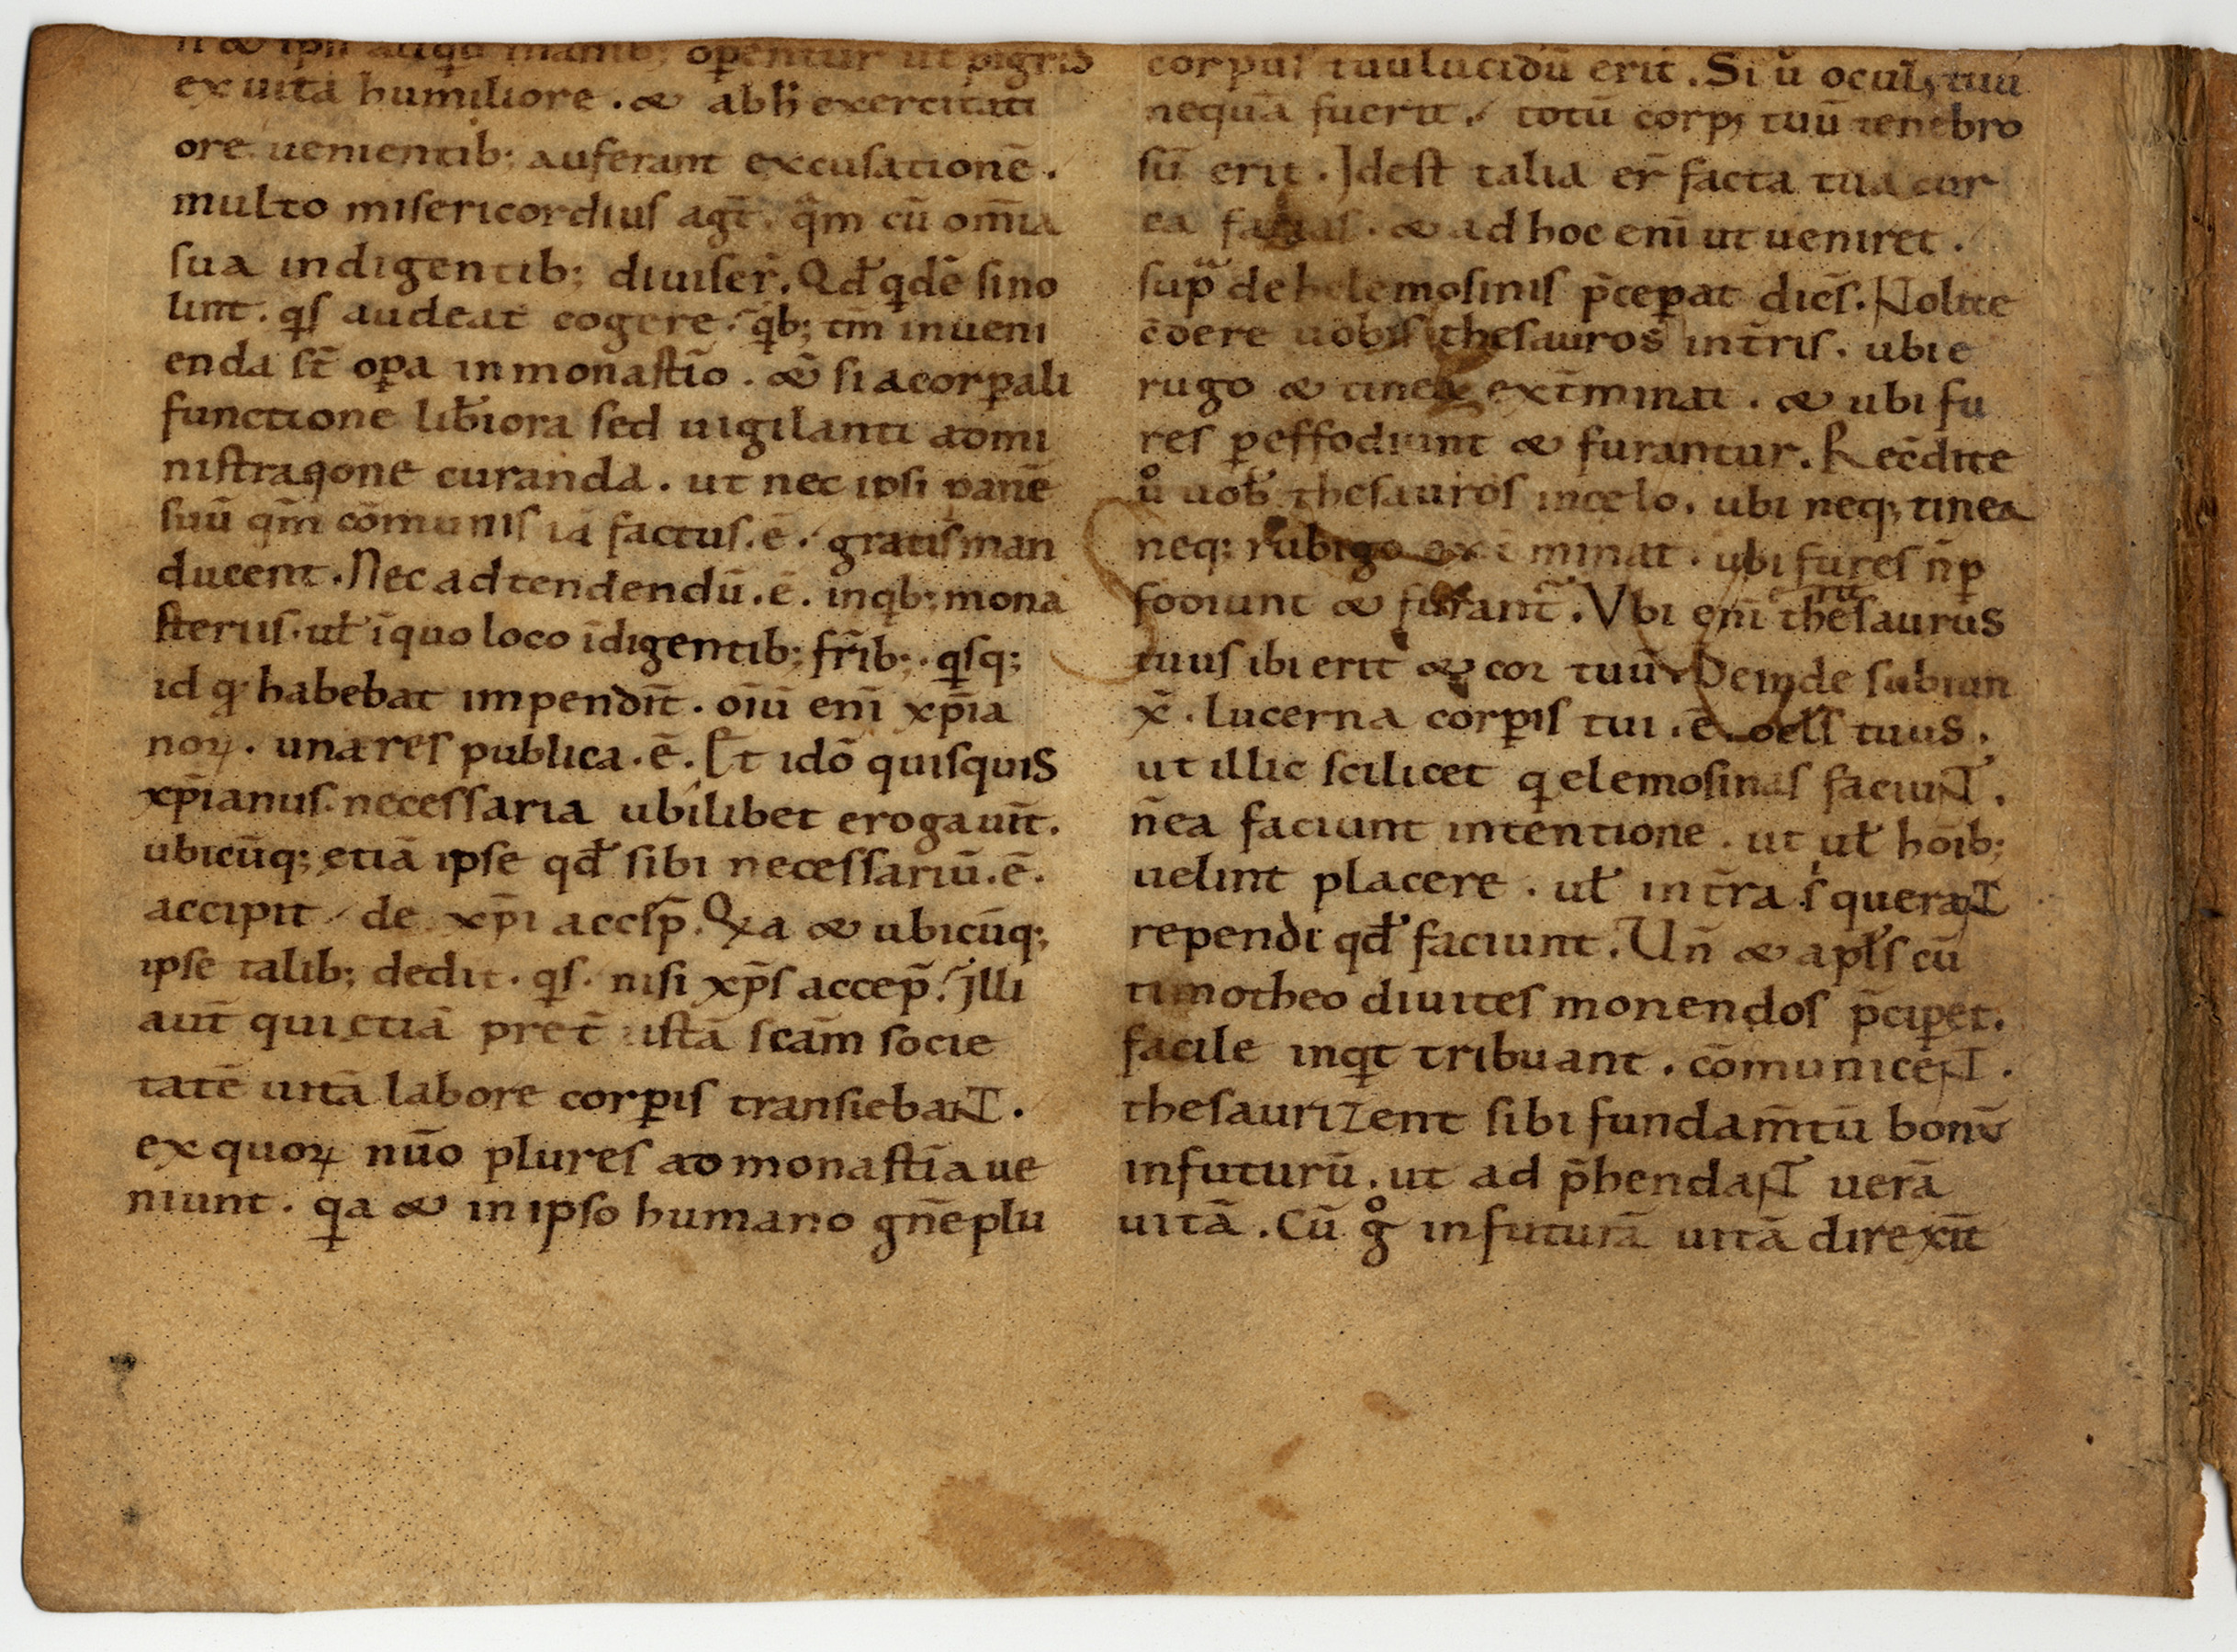 operentur ut pigris
ex uita humiliore . & abh̄ exercitati
ore uenientib; auferant excusationē .
multo misericordius agt̄ . qm̄ cū om̄ia
sua indigentib; diuiser̄ . Qd̄ qdē sino
lint . qs audeat cogere . qb; tm̄ inueni
enda st̄ oꝑa in monastīo . & si a corꝑali
functione lib̄iora sed uigilanti admi
nistratione curanda . ut nec ipsi panē
suū qm̄ cōmunis iā factus . ē . gratis man
ducent . Nec adtendendū . ē . inqb; mona
steriis . ul̄ īquo loco īdigentib; fr̄ib; . qsq;
id q habebat impendit̄ . oīū enī xp̄ia
noꝝ . una res publica . ē . Et idō quisquis
xp̄ianus . necessaria ubilibet erogauit̄ .
ubicūq; etiā ipse qd̄ sibi necessariū . ē .
accipit de xp̄i accip̄ . Qa & ubicūq;
ipse talib; dedit . qs . nisi xp̄s accep̄ . Illi
aut̄ qui etiā pret̄ istā scām socie
tatē uitā labore corꝑis transiebaNT .
ex quoꝝ nūo plures ad monastīa ue
niunt . qa & in ipso humano gn̄e plu
corpus tuū lucidū erit . Si ů ocul; tuū
nequā fuerit . totū corp; tuū tenebro
sū erit . Idest talia er̄ facta tua cur
ea facias . & ad hoc enī ut ueniret .
supᵃ de helemosinis p̄ceperat dic̄s . Nolite
c̄dere uobis thesauros in t̄ris . ubi e
rugo & tinea ext̄minat . & ubi fu
res ꝑeffodiunt & furantur . Rec̄dite
ů uob̄ thesauros in celo . ubi neq; tinea
neq; rubigo ext̄minat . ubi fures n̄ ꝑ
fodiunt & furant̄ . Vbi enī thesaurus
tuus ibi erit & cor tuū . Deinde subiun
x̄ . Lucerna corꝑis tui . ē . ocl̄s tuus .
ut illic scilicet q elemosinas faciuNT .
n̄ ea faciunt intentione . ut ul̄ hoīb;
uelint placere . ul̄ in t̄ra s querāNT
rependi qd̄ faciunt . Un̄ & apl̄s cū
timotheo diuites monendos p̄ciꝑet .
facile inqt tribuant . cōmunicēNT .
thesaurizent sibi fundam̄tū bonū
in futurū . ut ad p̄hendaNT uerā
uitā . Cū g̊ in futurā uitā direxit̄